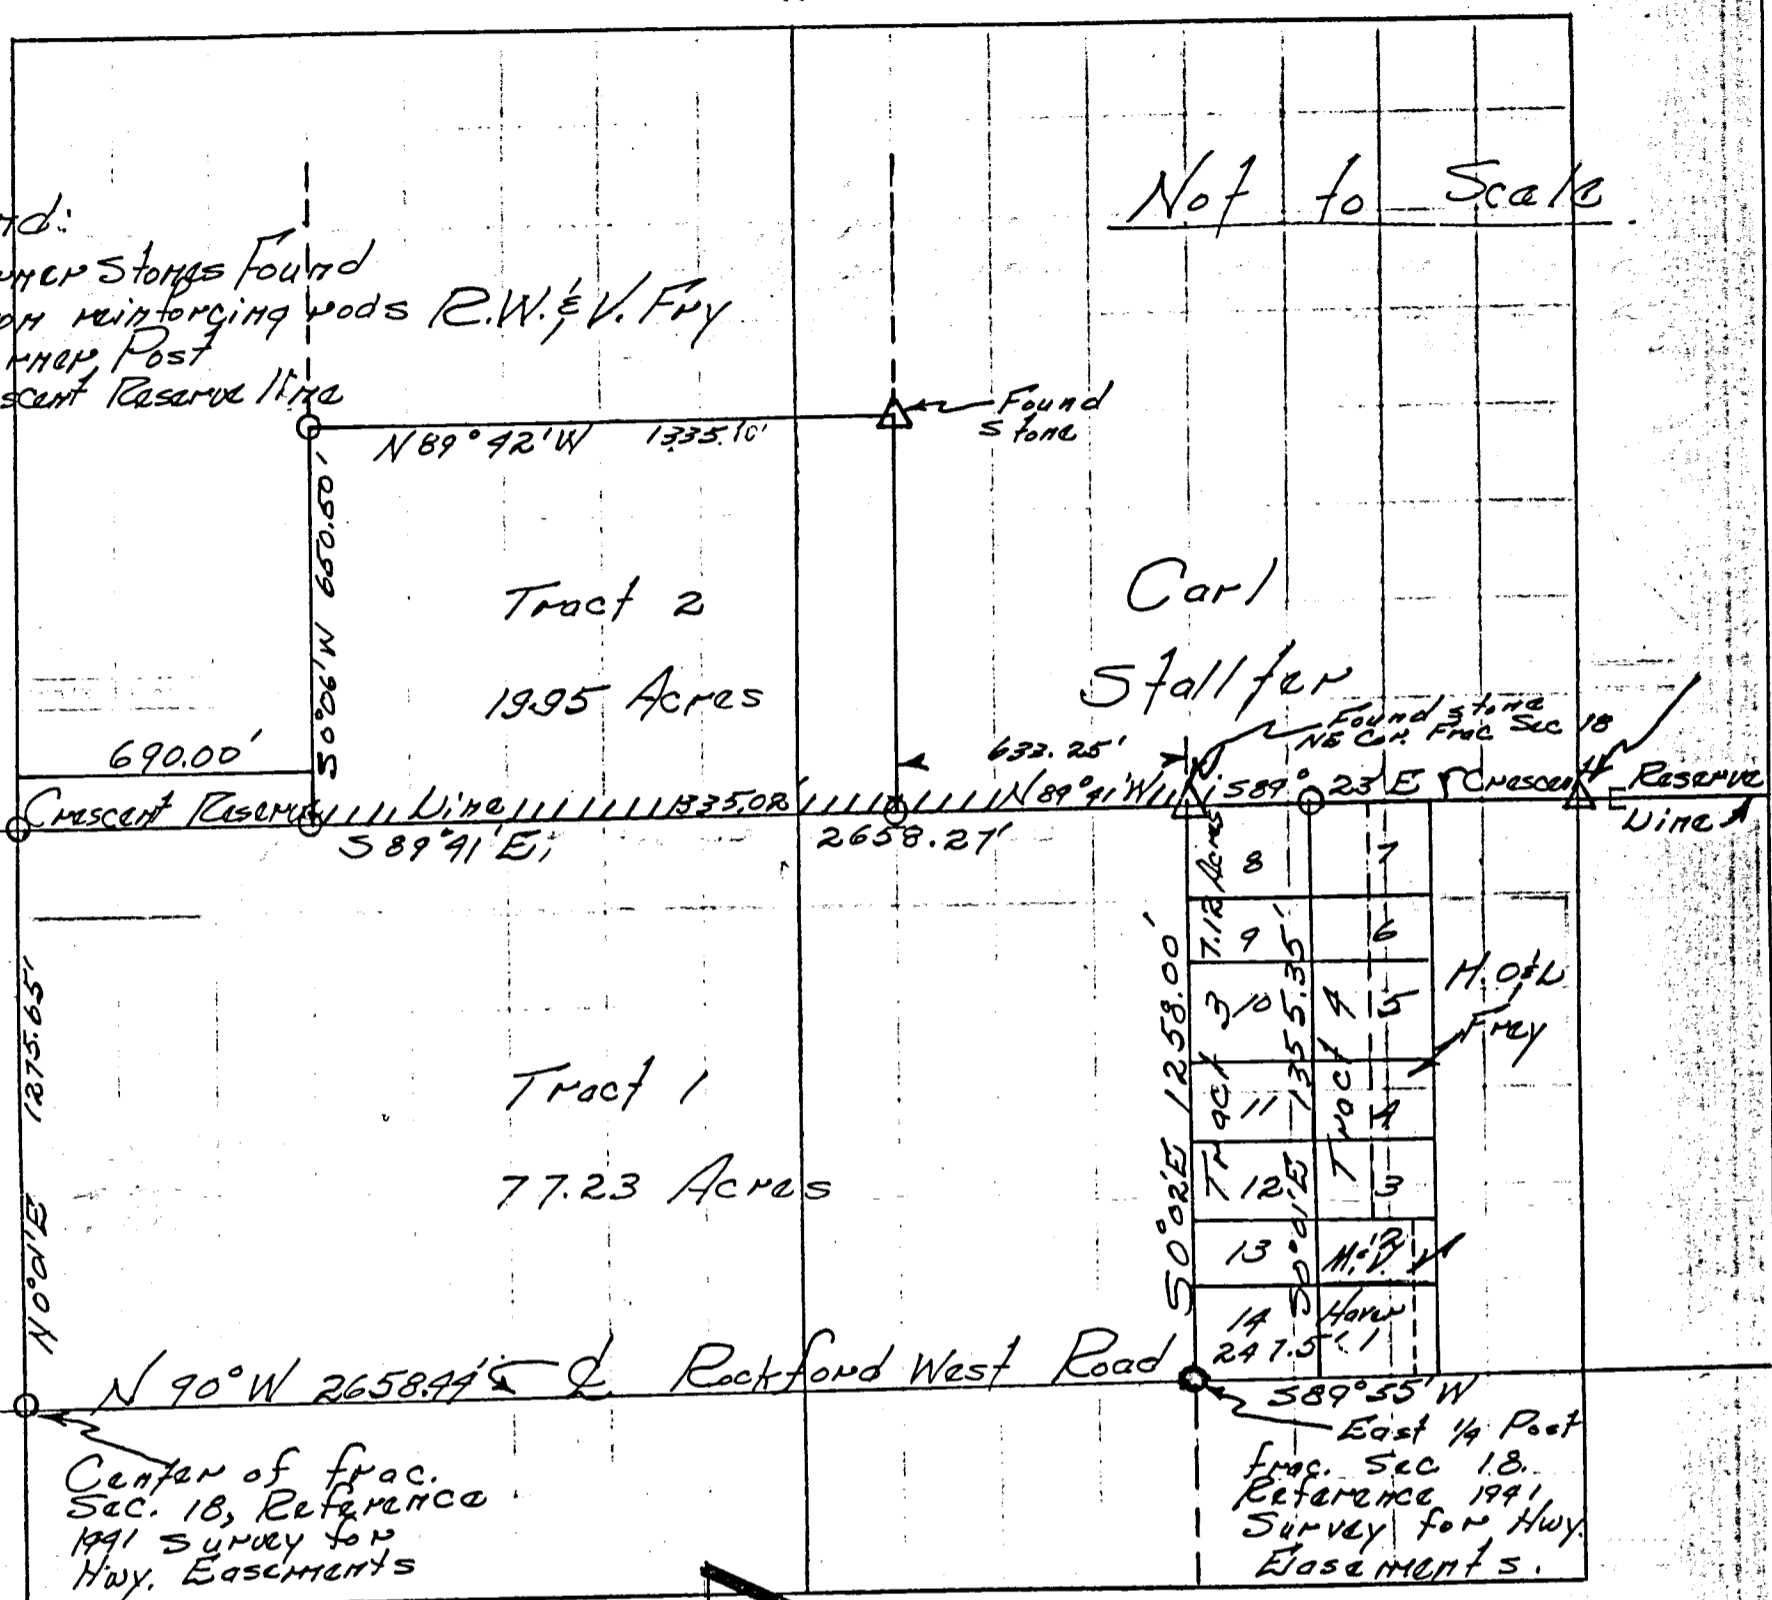 Not to Scale
nd:
rner Stones Found
on reinforcing rods
rner Post
scent Reserve line
R.W. & V. Fry
Found
stone
N 89° 42' W 1335.10'
S 0° 06' W 650.50'
Tract 2
19.95 Acres
Carl
Stallter
690.00'
633.25'
Found stone
NE Cor. Frac Sec 18
Crescent Reserve Line 1335.02
N 89° 41' W
S 89° 23' E
Crescent
Reserve
Line
S 89° 41' E;
2658.27'
N 0° 01' E 1275.65'
Tract 1
77.23 Acres
S 0° 02' E 1258.00'
Tract 3 7.12 Acres
S 0° 01' E 1355.35'
Tract 4
8
7
9
6
10
5
11
4
12
3
13
2
M. & V.
14
Haver
1
247.5'
H. O & L
Frey
N 90° W 2658.44'
℄ Rockford West Road
S 89° 55' W
Center of frac.
Sec. 18, Reference
1941 Survey for
Hwy. Easements
East 1/4 Post
frac. Sec 18.
Reference 1941
Survey for Hwy.
Easements.